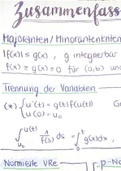 Zusammenfass
Majoranten/Minorantenkriter
|f(x)| ≤ g(x), g integrierbar
f(x) ≥ g(x) ≥ 0 für (a,b) und
Trennung der Variablen
(*) { u'(t) = g(t) f(u(t))
u(0) = u₀
∫ 1/f(s) ds = ∫ g(s)ds,
Normierte VRe
p-No